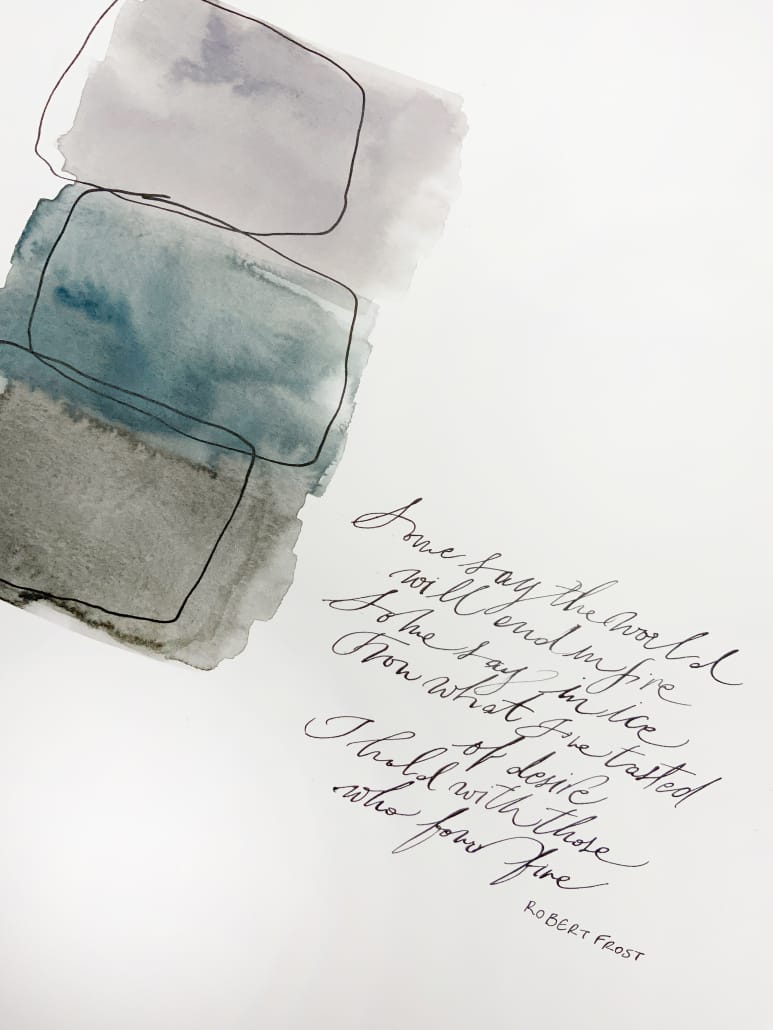 Some say the world
will end in fire
Some say in ice
From what I've tasted
of desire
I hold with those
who favor fire
ROBERT FROST